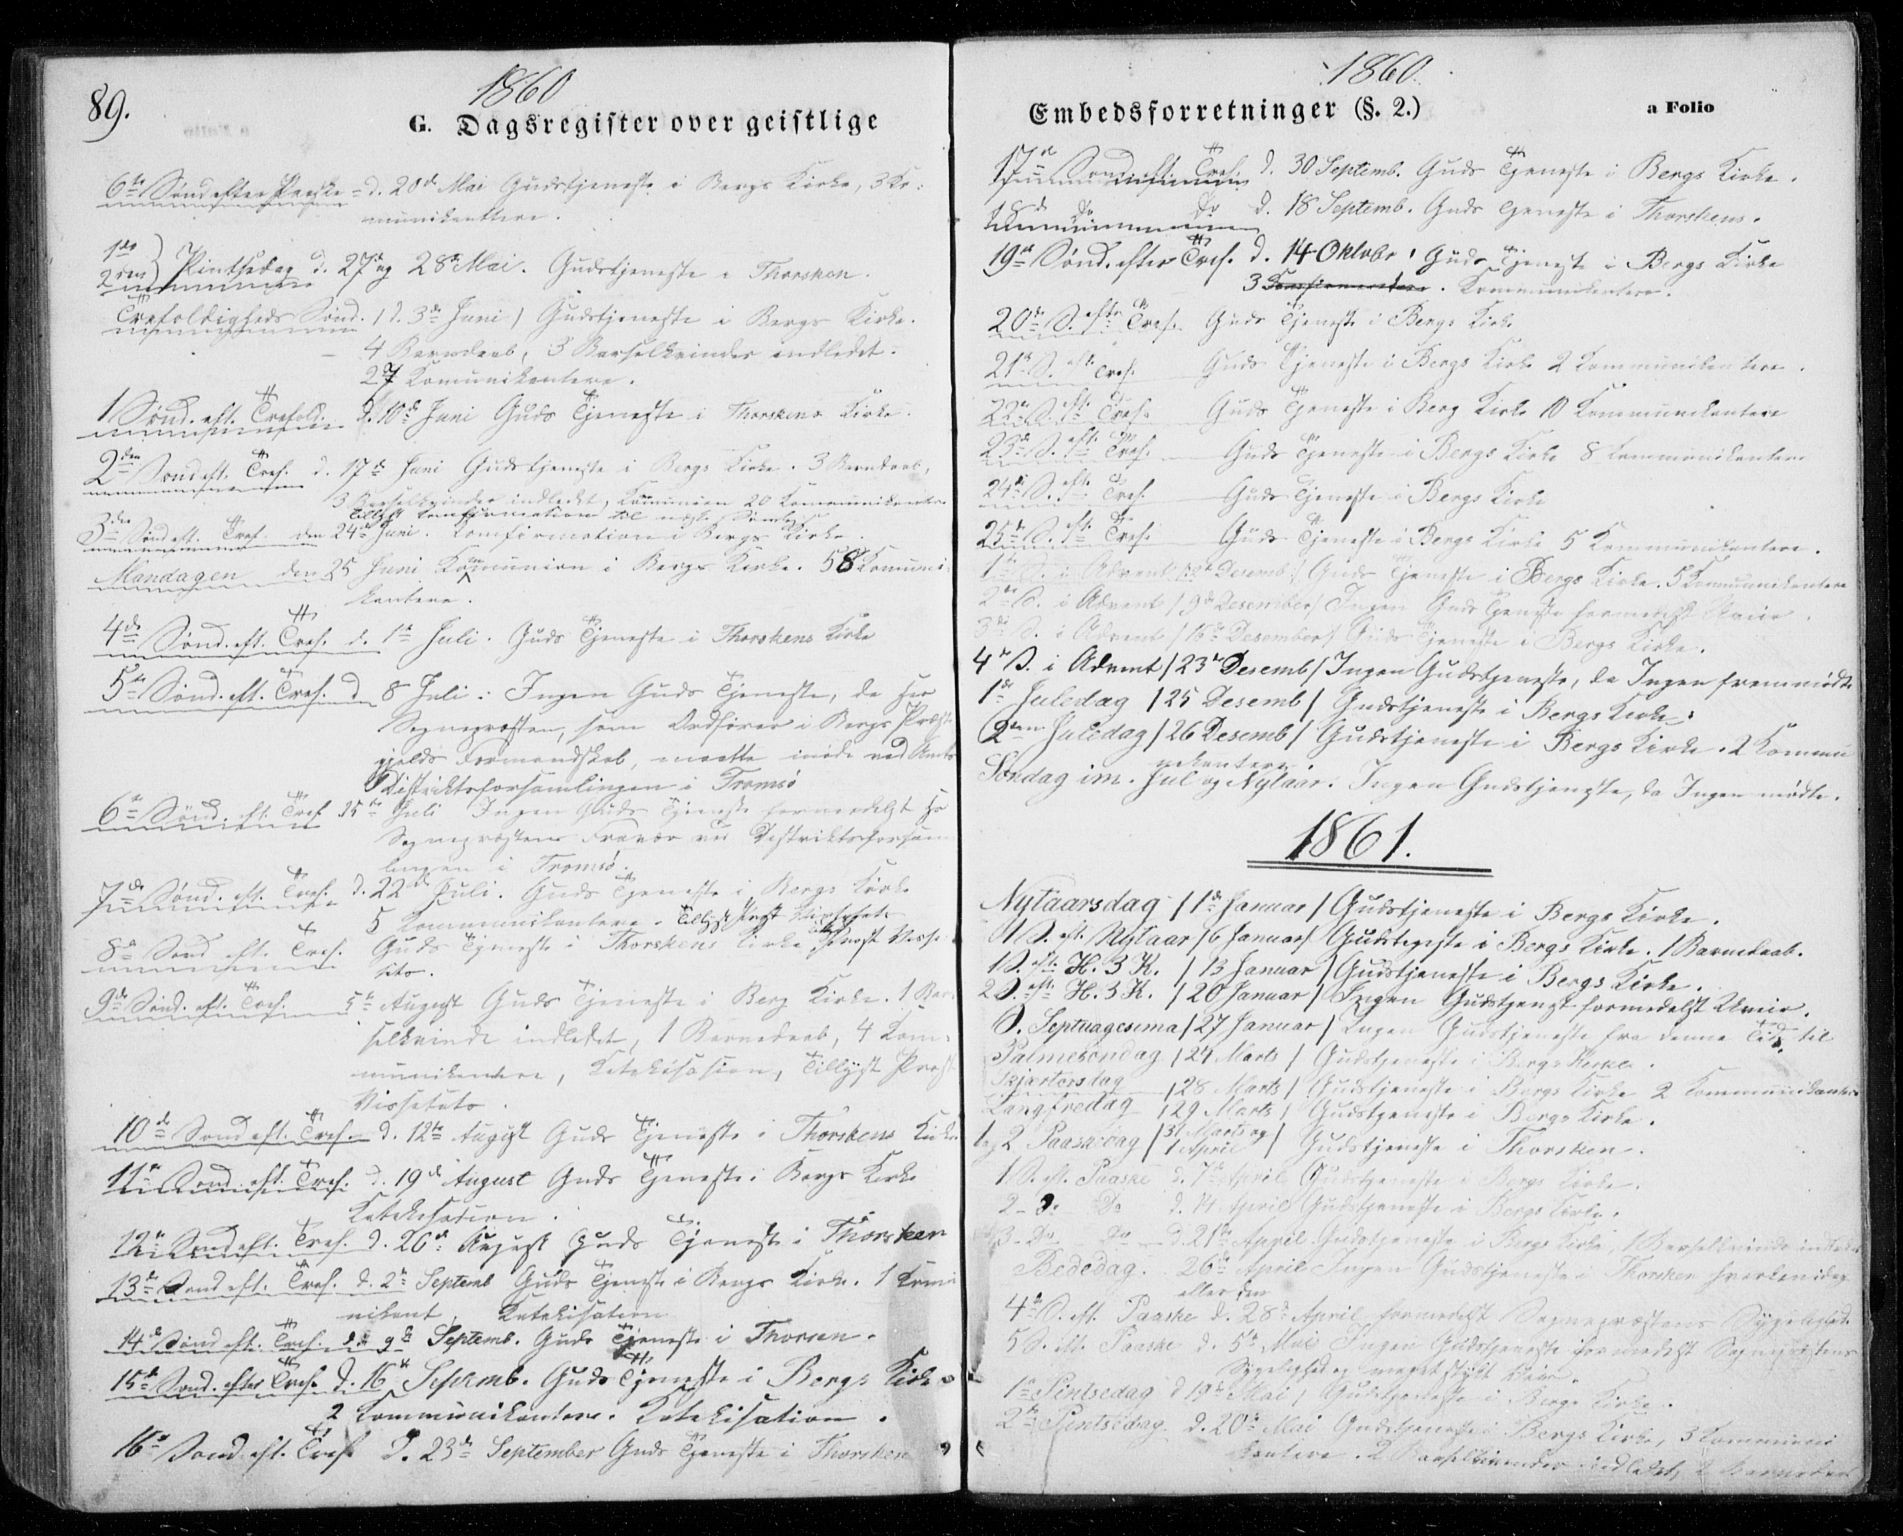 89.
1860
G. Dagsregister over geistlige
6te Sønd. efter Paaske d. 20de Mai Gudstjeneste i Bergs Kirke, 3 Ko-
munikantere.
1ste
2den } Pintsedag d. 27 og 28de Mai. Gudstjeneste i Thorsken.
Trefoldigheds Sønd. / d. 3de Juni / Gudstjeneste i Bergs Kirke.
4 Barndaab, 3 Barselkvinder indledet.
27 Komunikantere.
1 Sønd. eft. Trefold. d. 10de Juni Guds Tjeneste i Thorskens Kirke.
2den Sønd. eft. Tref. d. 17de Juni Gudstjeneste i Bergs Kirke. 3 Barndaab,
3 Barselkvinder indledet, Komunion 20 Kommunikantere
Tillyst Confirmation til næste Søndag
3die Sønd. eft. Tref. den 24de Juni. Confirmation i Bergs Kirke.
Mandagen den 25 Juni Komunion i Bergs Kirke. 58 Komuni-
kantere.
4de Sønd. eft. Tref. d. 1ste Juli. Guds Tjeneste i Thorskens Kirke
5te Sønd. eft. Tref. d. 8 Juli. Ingen Guds Tjeneste, da Her
Sognepræsten, som Ordfører i Bergs Præste-
gjelds Formandskab, maatte møde ved Amts
Distriktsforsamlingen i Tromsø
6te Sønd. eft. Tref. 15de Juli Ingen Guds Tjeneste formedelst Hr
Sognepræstens Fravær ved Distriktsforsam-
lingen i Tromsø.
7de Sønd. eft. Tref. d. 22de Juli. Guds Tjeneste i Bergs Kirke
5 Kommunikantere. Tillyst Provst Visitats
8de Sønd. eft. Tref. Guds Tjeneste i Thorskens Kirke, Provst Visi-
tats.
9de Sønd. eft. Tref. 5te August Guds Tjeneste i Berg Kirke. 1 Bar-
selkvinde indledet, 1 Barnedaab, 4 Kom-
munikantere, Katekisasion, Tillyst Provst
Vissetats.
10de Sønd. eft. Tref. d. 12te August Guds Tjeneste i Thorskens Kirke
11te Sønd. eft. Tref. d. 19de August Guds Tjeneste i Bergs Kirke
Katekisation.
12te Sønd. eft. Tref. d. 26de August Guds Tjeneste i Thorsken
13de Sønd. eft. Tref. d. 2de Septemb Guds Tjeneste i Bergs Kirke. 1 Komu-
nikant, Katekisation
14de Sønd. eft. Tref. d. 9de Septemb. Guds Tjeneste i Thorsen.
15de Sønd. efter Tref. d. 16de Septemb. Guds Tjeneste i Bergs Kirke
2 Kommunikantere. Katekisation.
16de Sønd. eft. Tref. d. 23de September Guds Tjeneste i Thorsken
1860.
Embedsforretninger (§. 2.)
a Folio
17de Sønd. eft. Tref. d. 30 Septemb. Guds Tjeneste i Bergs Kirke.
do do d. 18 Septemb. Guds Tjeneste i Thorskens.
19de Sønd. efter Tref. d. 14 Oktobr. Guds Tjeneste i Bergs Kirke
3 Konfirmantere. Kommunikantere.
20de S. eft. Tref. Guds Tjeneste i Bergs Kirke
21de S. eft. Tref. Guds Tjeneste i Bergs Kirke 2 Kommunikantere.
22de S. eft. Tref. Guds Tjeneste i Berg Kirke 10 Kommunikantere
23de S. eft. Tref. Guds Tjeneste i Bergs Kirke 8 Kommunikantere
24de S. eft. Tref. Guds Tjeneste i Bergs Kirke
25de S. eft. Tref. Guds Tjeneste i Bergs Kirke 5 Kommunikantere.
1ste S. i Advent / 2de Desemb / Guds Tjeneste i Bergs Kirke. 5 Kommunikantere
2den S. i Advent / 9de Desember / Ingen Guds Tjeneste formedelst Uveir.
3die S. i Advent / 16de Desember / Guds Tjeneste i Bergs Kirke.
4de S. i Advent / 23de Desemb / Ingen Gudstjeneste, da Ingen fremmødte
1ste Juledag / 25 Desemb / Gudstjeneste i Bergs Kirke.
2den Juledag / 26 Desemb / Gudstjeneste i Bergs Kirke. 2 Kommu-
nikantere
Søndag im. Jul og Nytaar. Ingen Gudstjeneste, da Ingen mødte.
1861.
Nytaarsdag / 1ste Januar / Gudstjeneste i Bergs Kirke.
1 S. eft. Nytaar / 6 Januar / Gudstjeneste i Bergs Kirke. 1 Barnedaab.
1 S. eft. H. 3 K. / 13 Januar / Gudstjeneste i Bergs Kirke.
2 S. eft. H. 3 K. / 20 Januar / Ingen Gudstjenest formedelst Uveir.
S. Septuagesima / 27 Januar / Ingen Gudstjeneste fra denne Tid til
Palmesøndag / 24 Marts / Gudstjeneste i Bergs Kirke.
Skjærtorsdag / 28 Marts / Gudstjeneste i Bergs Kirke 2 Kommunikanter
Langfredag / 29 Marts / Gudstjeneste i Bergs Kirke.
1 og 2 Paaskedag / 31 Marts og 1 April / Gudstjeneste i Thorsken.
1 S. eft. Paaske d. 7de April Gudstjeneste i Bergs Kirke.
2 - Do Do d. 14 April Gudstjeneste i Bergs Kirke.
3 - Do Do d. 21de April Gudstjeneste i Bergs Kirke, 1 Barselkvinde indledet
Bededag. 26de April Ingen Gudstjeneste i Thorsken hverken idag
eller den
4de S. eft. Paaske d. 28de April formedelst Sognepræstens Sygelighed.
5 S. eft. Paaske d. 5te Mai Ingen Gudstjeneste formedelst Sognepræstens
Sygelighed og meget stygt Veir.
1ste Pintsedag d 19de Mai / Gudstjeneste i Bergs Kirke.
2de Pintsedag. d. 20de Mai Gudstjeneste i Bergs Kirke, 5 Kommuni-
kantere. 2 Barselkvinder indledet, 2 Barnedaab